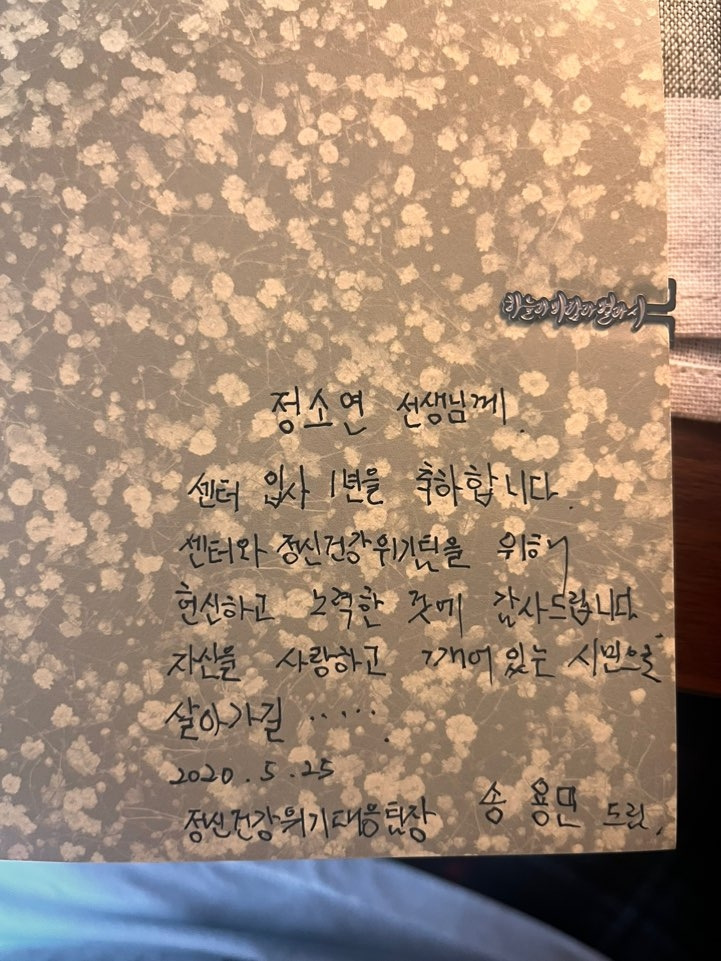 하늘과 바람과 별과 시
정소연 선생님께.
센터 입사 1년을 축하합니다.
센터와 정신건강위기팀을 위해
헌신하고 노력한 것에 감사드립니다.
자신을 사랑하고 깨어있는 시민으로
살아가길 ......
2020. 5. 25
정신건강위기대응팀장 송용민 드림.